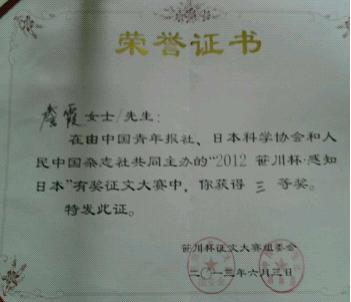 荣誉证书
霞女士/先生：
在由中国青年报社、日本科学协会和人
民中国杂志社共同主办的“2012 笹川杯·感知
日本”有奖征文大赛中，你获得 三 等奖。
特发此证。
笹川杯征文大赛组委会
二〇一三年六月三日